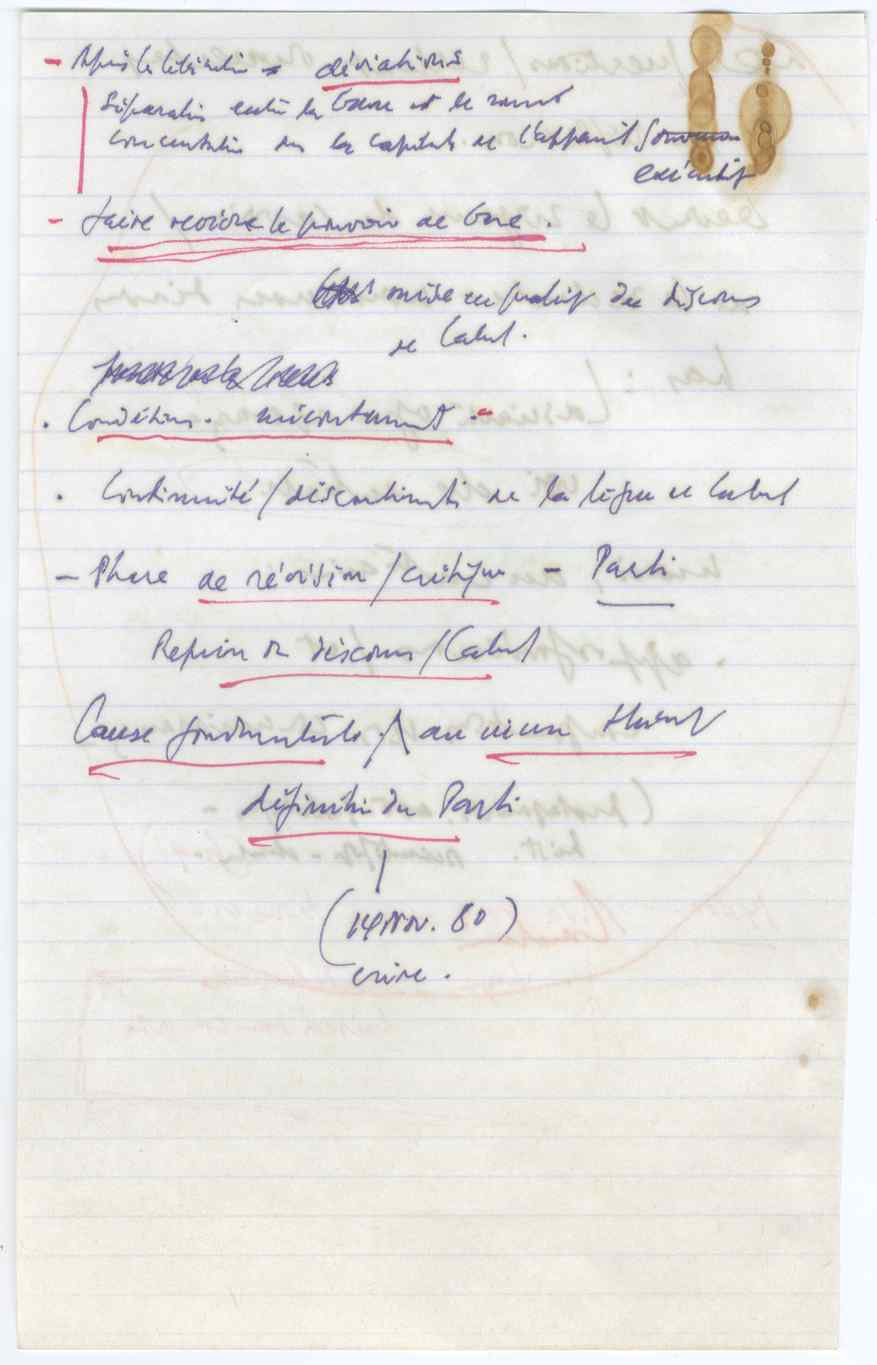 - Après la libération → déviations
Séparation entre la base et le sommet
Concentration dans la capitale de l'appareil
exécutif
- faire revivre le pouvoir de base.
mise en pratique du discours
de Cabral.
. Conditions. mécontement -
. Continuité/discontinuité de la ligne de Cabral
- Phase de révision/critique - Parti
Reprise du discours/Cabral
Cause fondamentale / au niveau
définition du Parti
(14 Nov. 80)
crise.